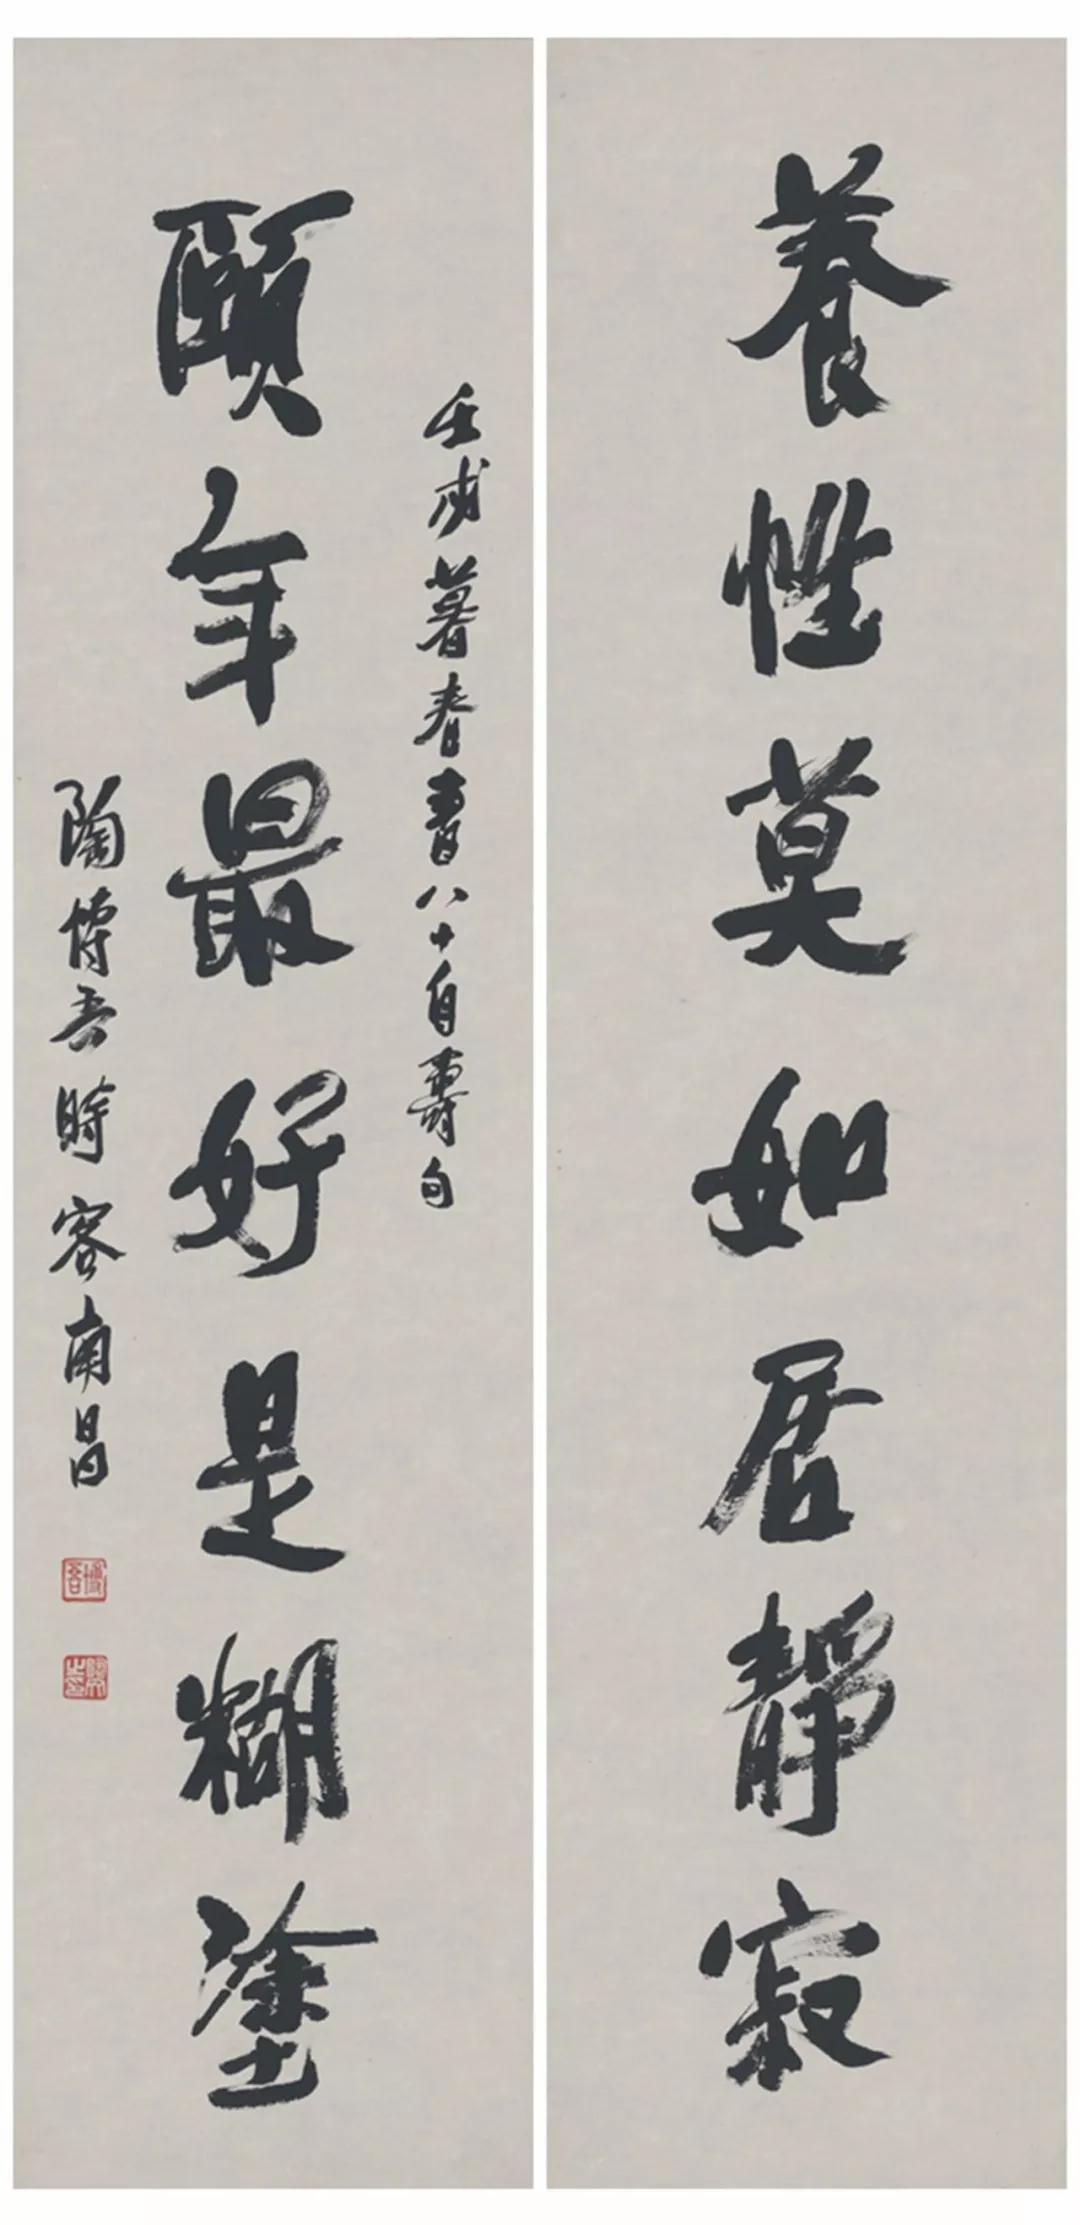 養性莫如居靜寂
頤年最好是糊塗
壬戌暮春書八十自壽句
陶博吾時客南昌
博吾